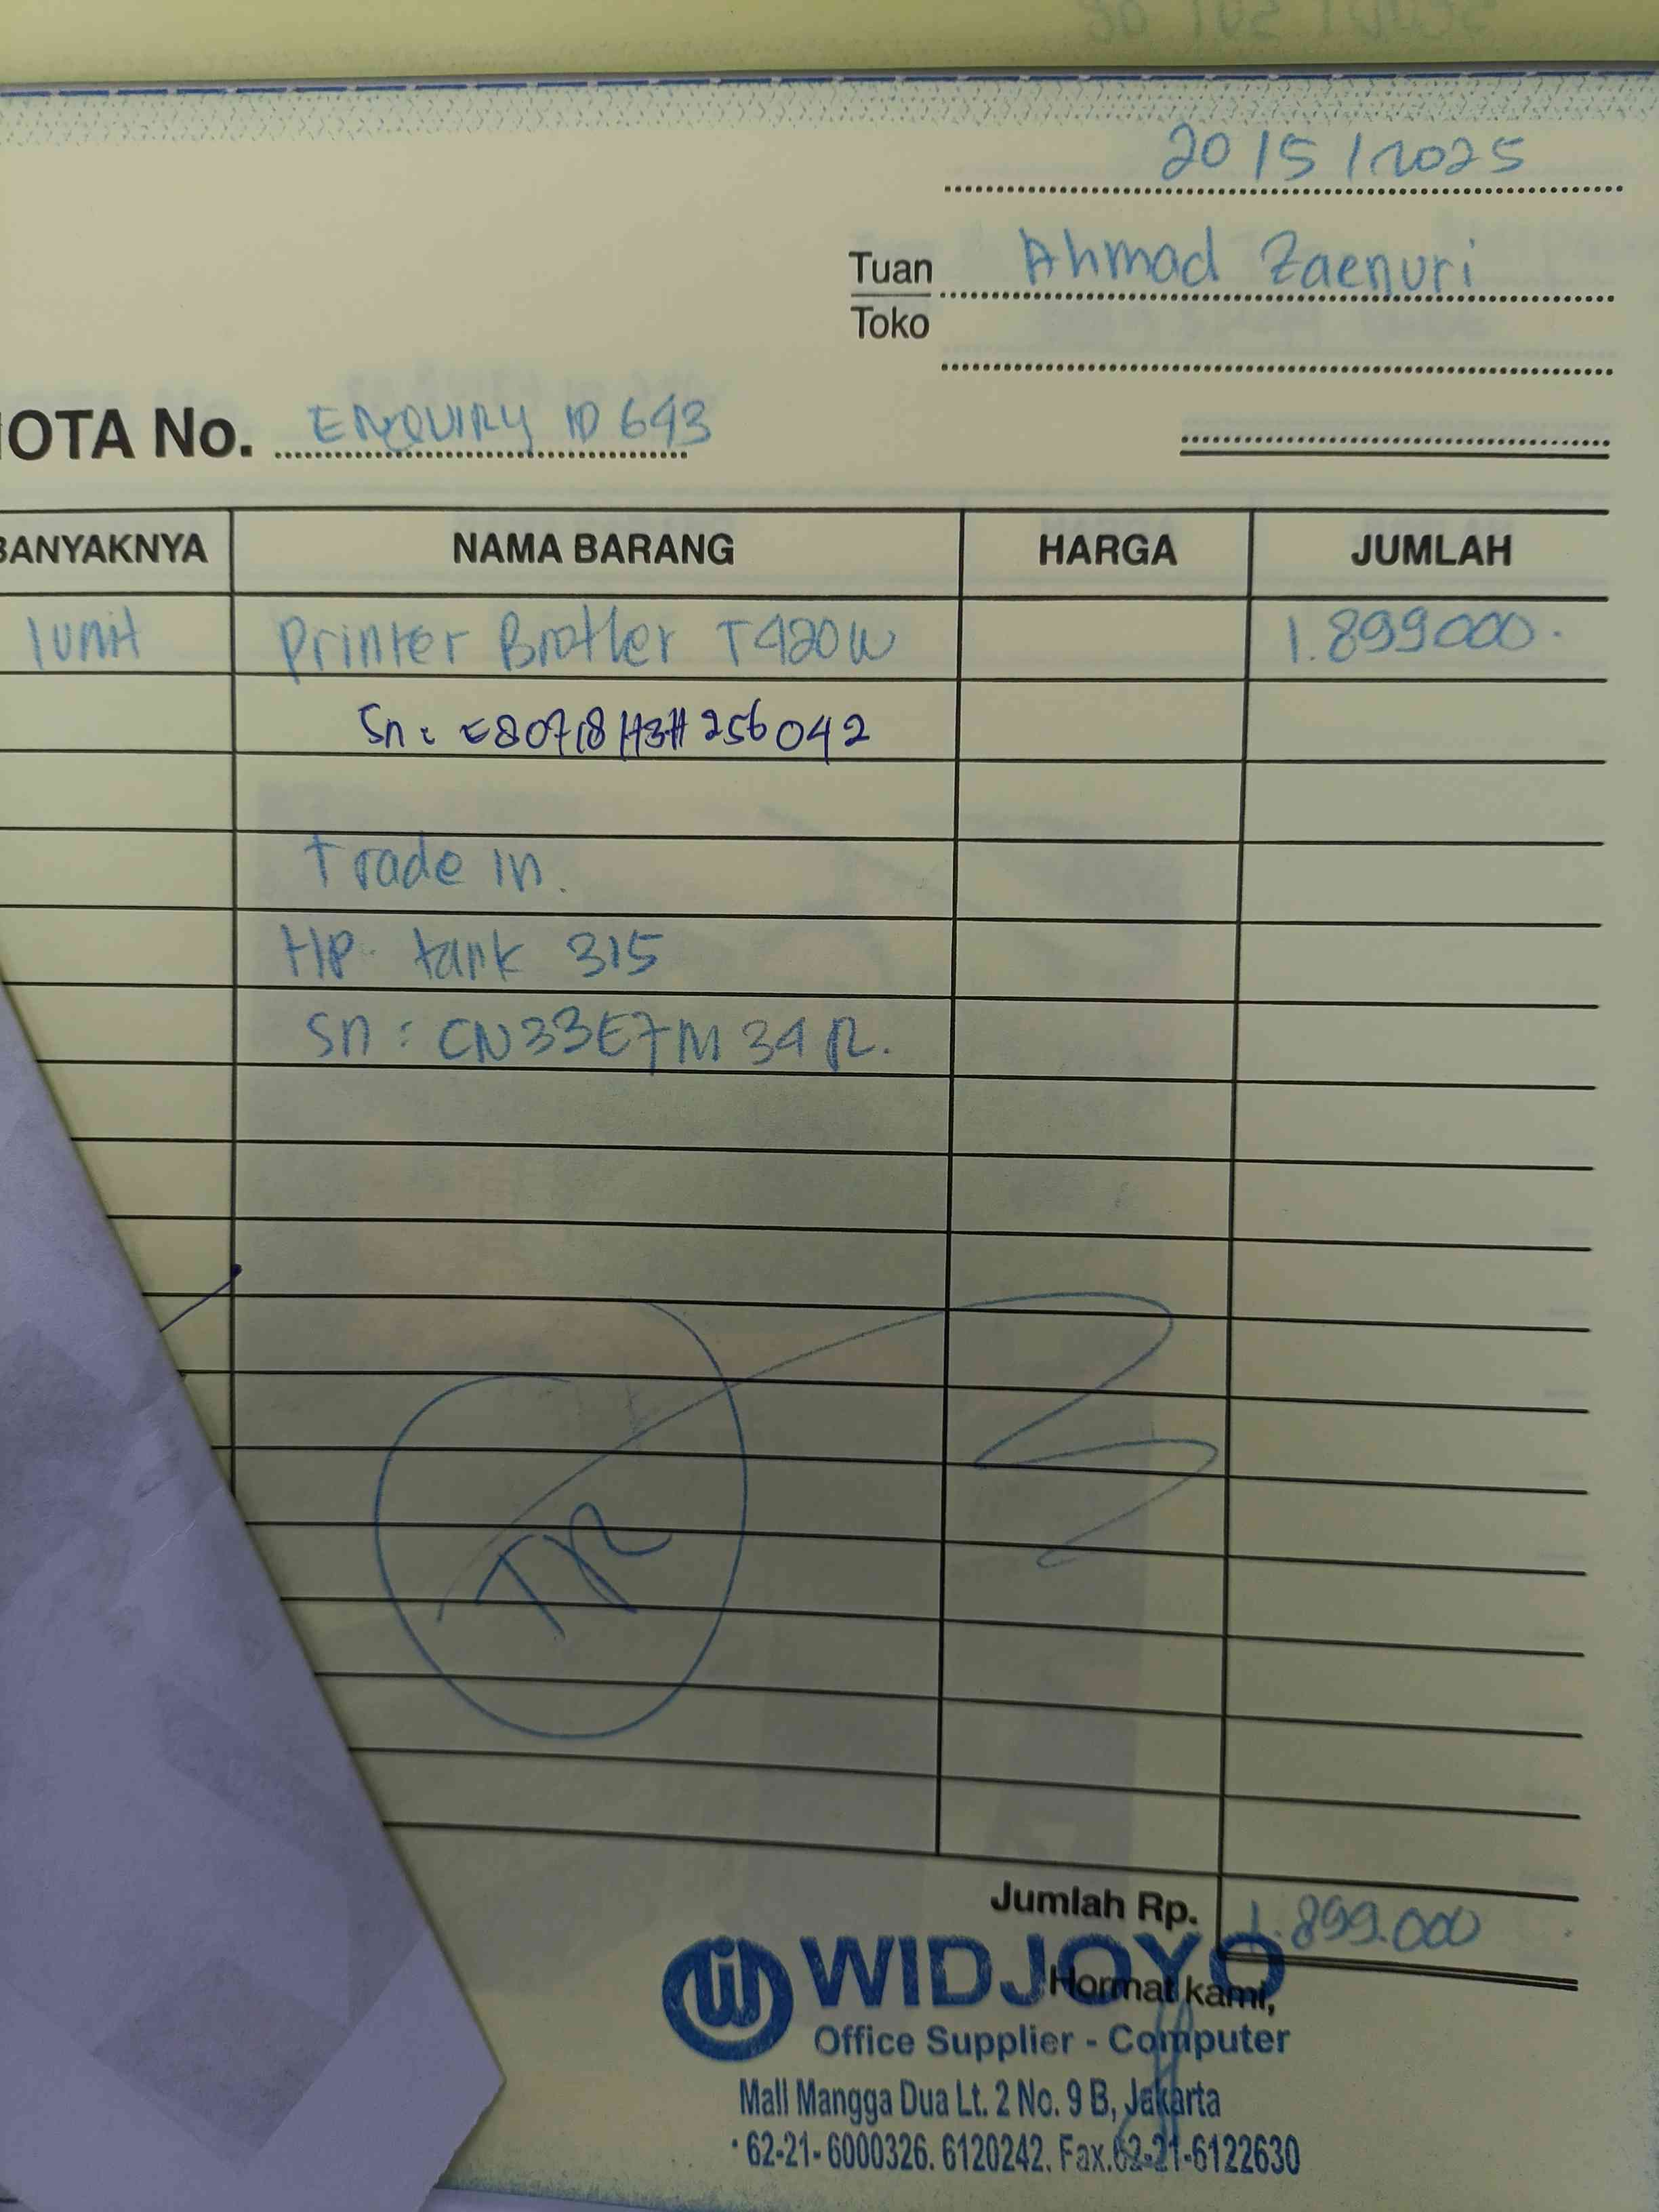 20/5/2025
Tuan Ahmad Zaenuri
Toko
OTA No. ENQUIRY ID 643
BANYAKNYA NAMA BARANG HARGA JUMLAH
1 unit Printer Brother T420W 1.899000.
Sn: E80718H3H256042
Trade in.
HP tank 315
Sn: CN33E7M34R.
TR
Jumlah Rp. 1.899.000
WIDJOYO
Hormat kami,
Office Supplier - Computer
Mall Mangga Dua Lt. 2 No. 9 B, Jakarta
62-21- 6000326. 6120242. Fax.62-21-6122630